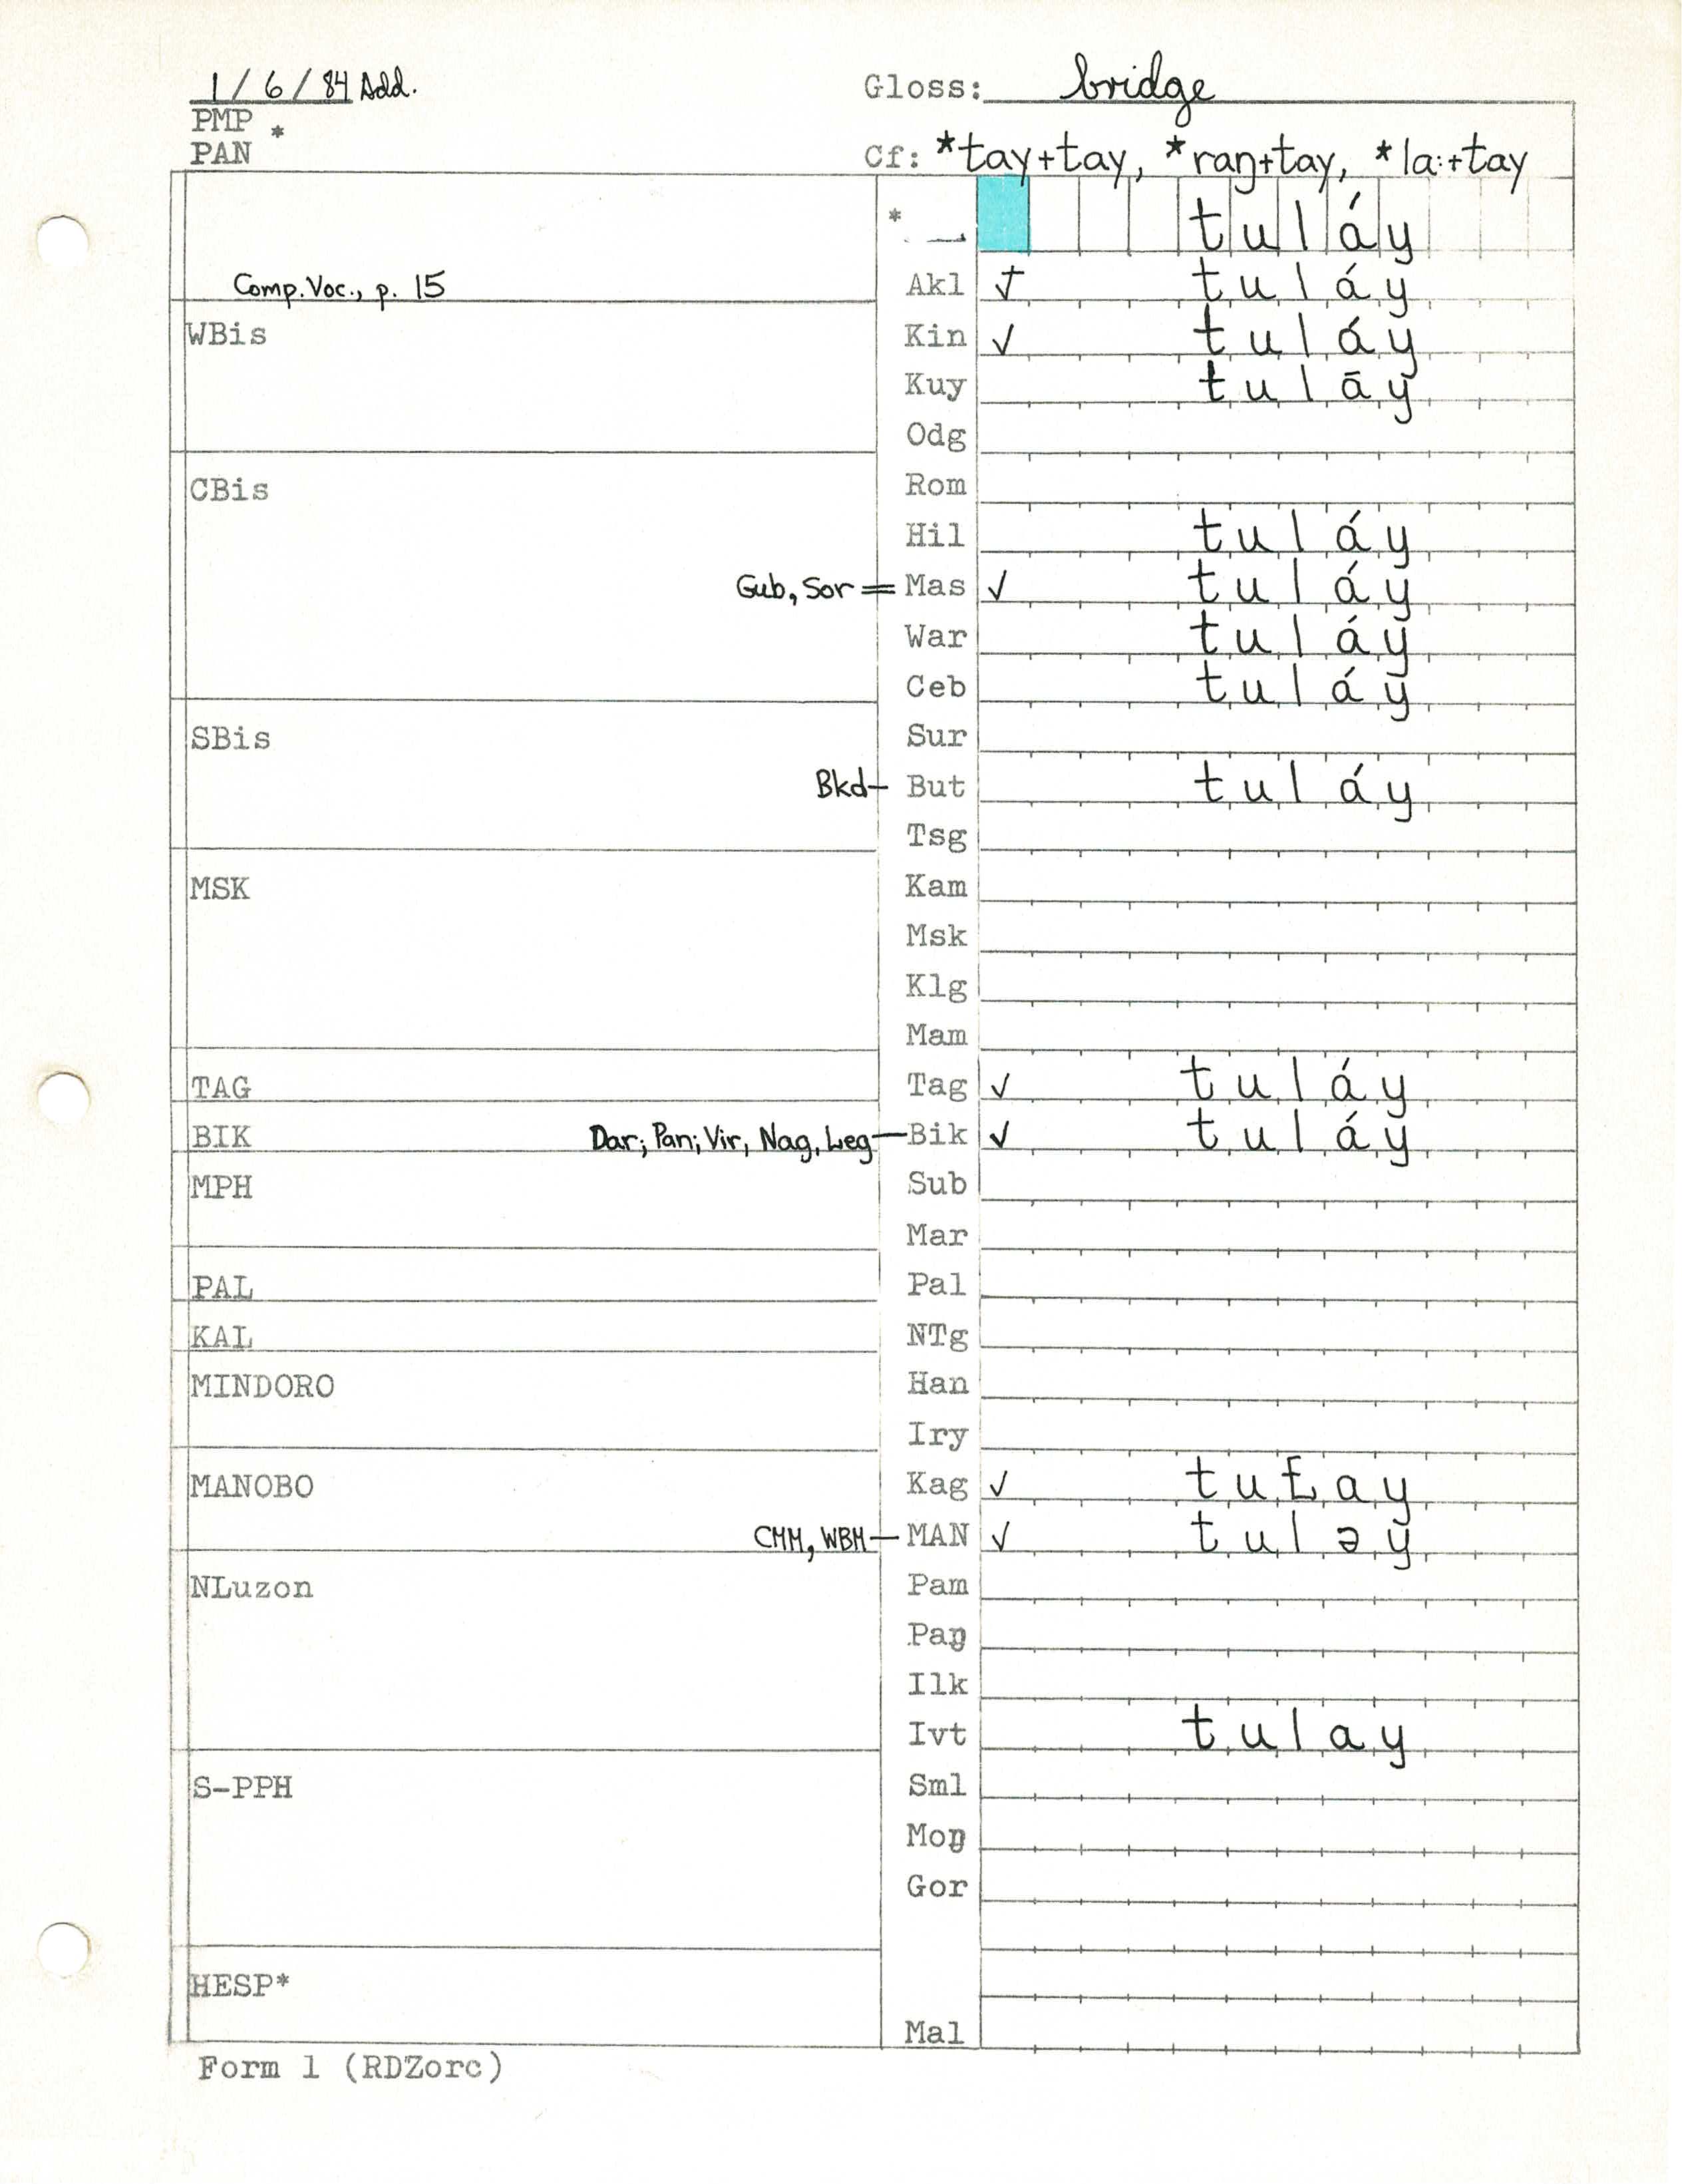 1/6/84 Add. Gloss: bridge
PMP *
PAN Cf: *tay+tay, *raŋ+tay, *la:+tay
* tuláy
Comp. Voc., p. 15 Akl ✓ tuláy
WBis Kin ✓ tuláy
Kuy tulāy
Odg
CBis Rom
Hil tuláy
Gub, Sor = Mas ✓ tuláy
War tuláy
Ceb tuláy
SBis Sur
Bkd — But tuláy
Tsg
MSK Kam
Msk
Klg
Mam
TAG Tag ✓ tuláy
BIK Dar; Pan; Vir, Nag, Leg — Bik ✓ tuláy
MPH Sub
Mar
PAL Pal
KAL NTg
MINDORO Han
Iry
MANOBO Kag ✓ tuŁay
CMM, WBM — MAN ✓ tuləy
NLuzon Pam
Paŋ
Ilk
Ivt tulay
S-PPH Sml
Moŋ
Gor
HESP*
Mal
Form 1 (RDZorc)